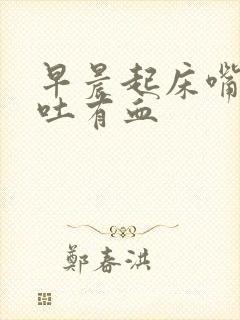 早晨起床嘴
吐有血
鄭春洪